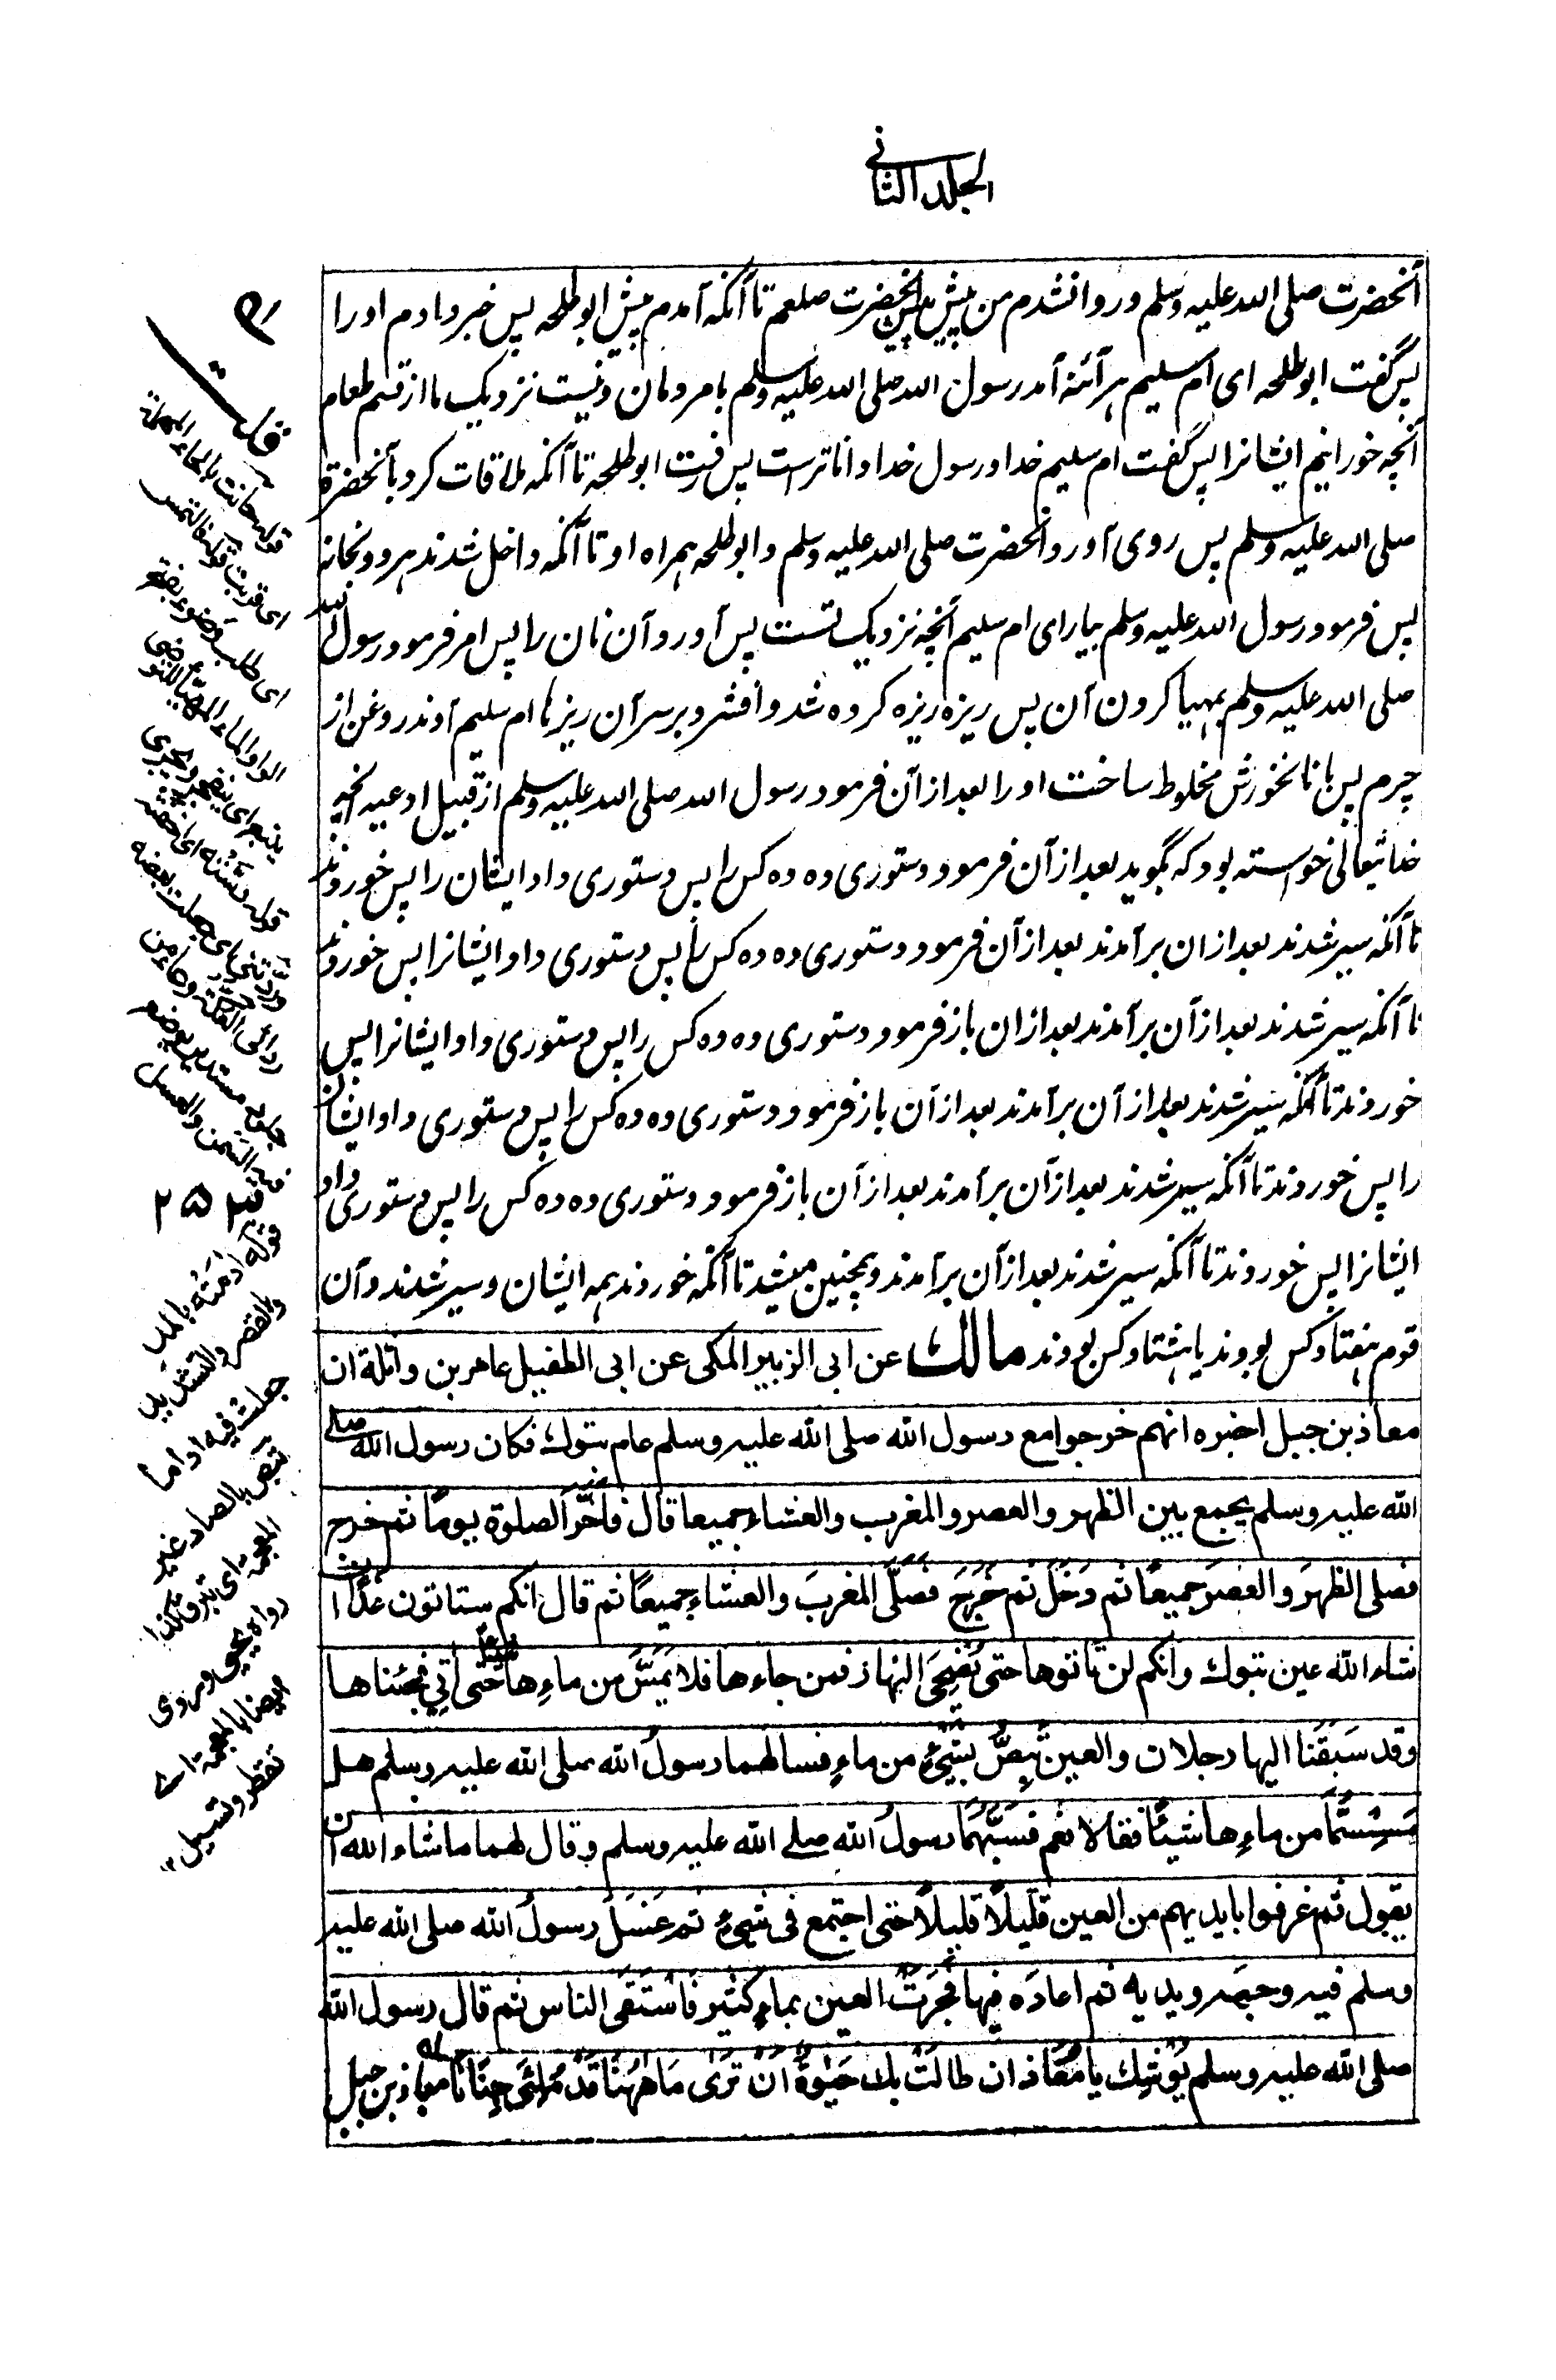 الجلد الثانی
آنحضرت صلی الله علیه وسلم و روانشدم من پیش پیش آنحضرت صلعم تا آنکه آمدم پیش ابو طلحه پس خبر دادم او را
پس گفت ابو طلحه ای ام سلیم هر آئنه آمد رسول الله صلی الله علیه وسلم با مردمان و نیست نزدیک ما از قسم طعام
آنچه خورانیم ایشانرا پس گفت ام سلیم خدا و رسول خدا دانا ترست پس رفت ابو طلحة تا آنکه ملاقات کرد بآنحضرة
صلی الله علیه وسلم پس روی آورد آنحضرت صلی الله علیه وسلم و ابو طلحه همراه او تا آنکه داخل شدند هر دو بخانه
پس فرمود رسول الله علیه وسلم بیار ای ام سلیم آنچه نزدیک تست پس آورد آن نان را پس امر فرمود رسول الله
صلی الله علیه وسلم بمهیا کردن آن پس ریزه ریزه کرده شد و افشرد بر سر آن ریزها ام سلیم آوند روغن از
چرم پس با نانخورش مخلوط ساخت او را بعد از آن فرمود رسول الله صلی الله علیه وسلم از قبیل ادعیه آنچه
خدا تیعالی خواسته بود که بگوید بعد از آن فرمود دستوری ده ده کس را پس دستوری داد ایشان را پس خوردند
تا آنکه سیر شدند بعد ازان بر آمدند بعد از آن فرمود دستوری ده ده کس را پس دستوری داد ایشانرا پس خوردند
تا آنکه سیر شدند بعد از آن بر آمدند بعد ازان باز فرمود دستوری ده ده کس را پس دستوری داد ایشانرا پس
خوردند تا آنکه سیر شدند بعد از آن بر آمدند بعد از آن باز فرمود دستوری ده ده کس را پس دستوری داد ایشان
را پس خوردند تا آنکه سیر شدند بعد از آن بر آمدند بعد از آن باز فرمود دستوری ده ده کس را پس دستوری داد
ایشانرا پس خوردند تا آنکه سیر شدند بعد از آن بر آمدند و همچنین میشد تا آنکه خوردند همه ایشان و سیر شدند و آن
قوم هفتاد کس بودند یا هشتاد کس بودند مالك عن ابی الزبیر المکی عن ابی الطفیل عامر بن واثلة ان
معاذ بن جبل اخبره انهم خرجوا مع رسول الله صلی الله علیه وسلم عام تبوك فکان رسول الله صلی
الله علیه وسلم یجمع بین الظهر والعصر والمغرب والعشاء جمیعا قال فَاَخَّرَ الصلوة یومًا ثم خرج
فصلی الظهرَ والعصرَ جمیعًا ثم دَخَلَ ثم خَرَجَ فَصَلَّی المغربَ والعشاءَ جمیعًا ثم قال انکم ستاتون غدًا ان
شاء الله عین تبوك وانکم لن تاتوها حتی یُضحِیَ النهار فمن جاءها فلا یَمَسَّ من ماءِها شیئًا حَتّی اٰتِیَ فجئناها
وقد سَبَقَنا الیها رجلان والعین تَبِصُّ بشَیْءٍ من ماءٍ فسالهما رسولُ الله صلی الله علیه وسلم هل
مَسِسْتُمَا من ماءِها شیئًا فقالا نعم فَسَبَّهُمَا رسولُ الله صلی الله علیه وسلم وقال لهما ما شاء الله ان
یقول ثم غرفوا بایدیهم من العین قلیلاً قلیلاً حتی اجتمع فی شیءٍ ثم غَسَلَ رسولُ الله صلی الله علیه
وسلم فیه وجهه ویدیه ثم اعادَه فیها فجَرَتْ العین بماءٍ کثیر فَاسْتَقَی الناس ثم قال رسول الله
صلی الله علیه وسلم یُوشِك یا مُعَاذ ان طالَتْ بك حَیٰوةٌ اَنْ تَرٰی مَا هٰهُنَا قَدْ مُلِئَ جِنَانًا معاذ بن جبل
قلت
قوله حانت بالحاء المهملة
ای قربت قوله فالتمس
ای طلب وَضوء بفتح
الواو الماء المهیأ للتوضی
ینبع ای یتفجر ویجری
جلود مستدیر یوضع
فیه السَّمن والعسل
۲۵
قوله اٰدَمَتْه بالمد
والقصر والتشدید
جعلت فیه اداما
تبصّ بالصاد غیر
المعجمة ای تبرق هکذا
رواه یحیی وروی
ایضا بالمعجمة ای
تقطر وتسیل ۱۲